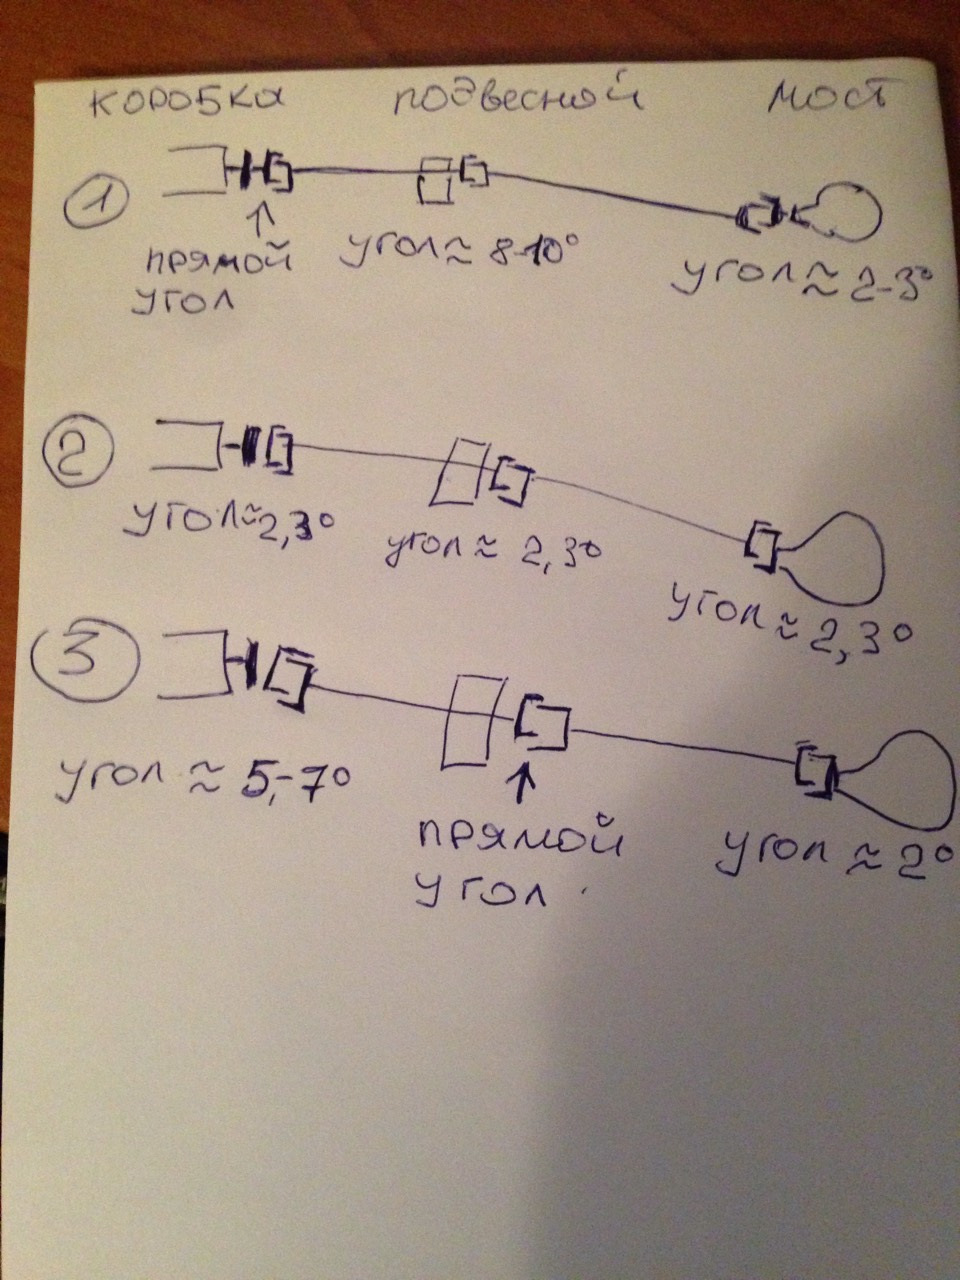 коробка подвесной мост
1
прямой угол≈8-10° угол≈2-3°
угол
2
угол≈2,3° угол≈2,3° угол≈2,3°
3
угол≈5,-7° прямой угол≈2°
угол